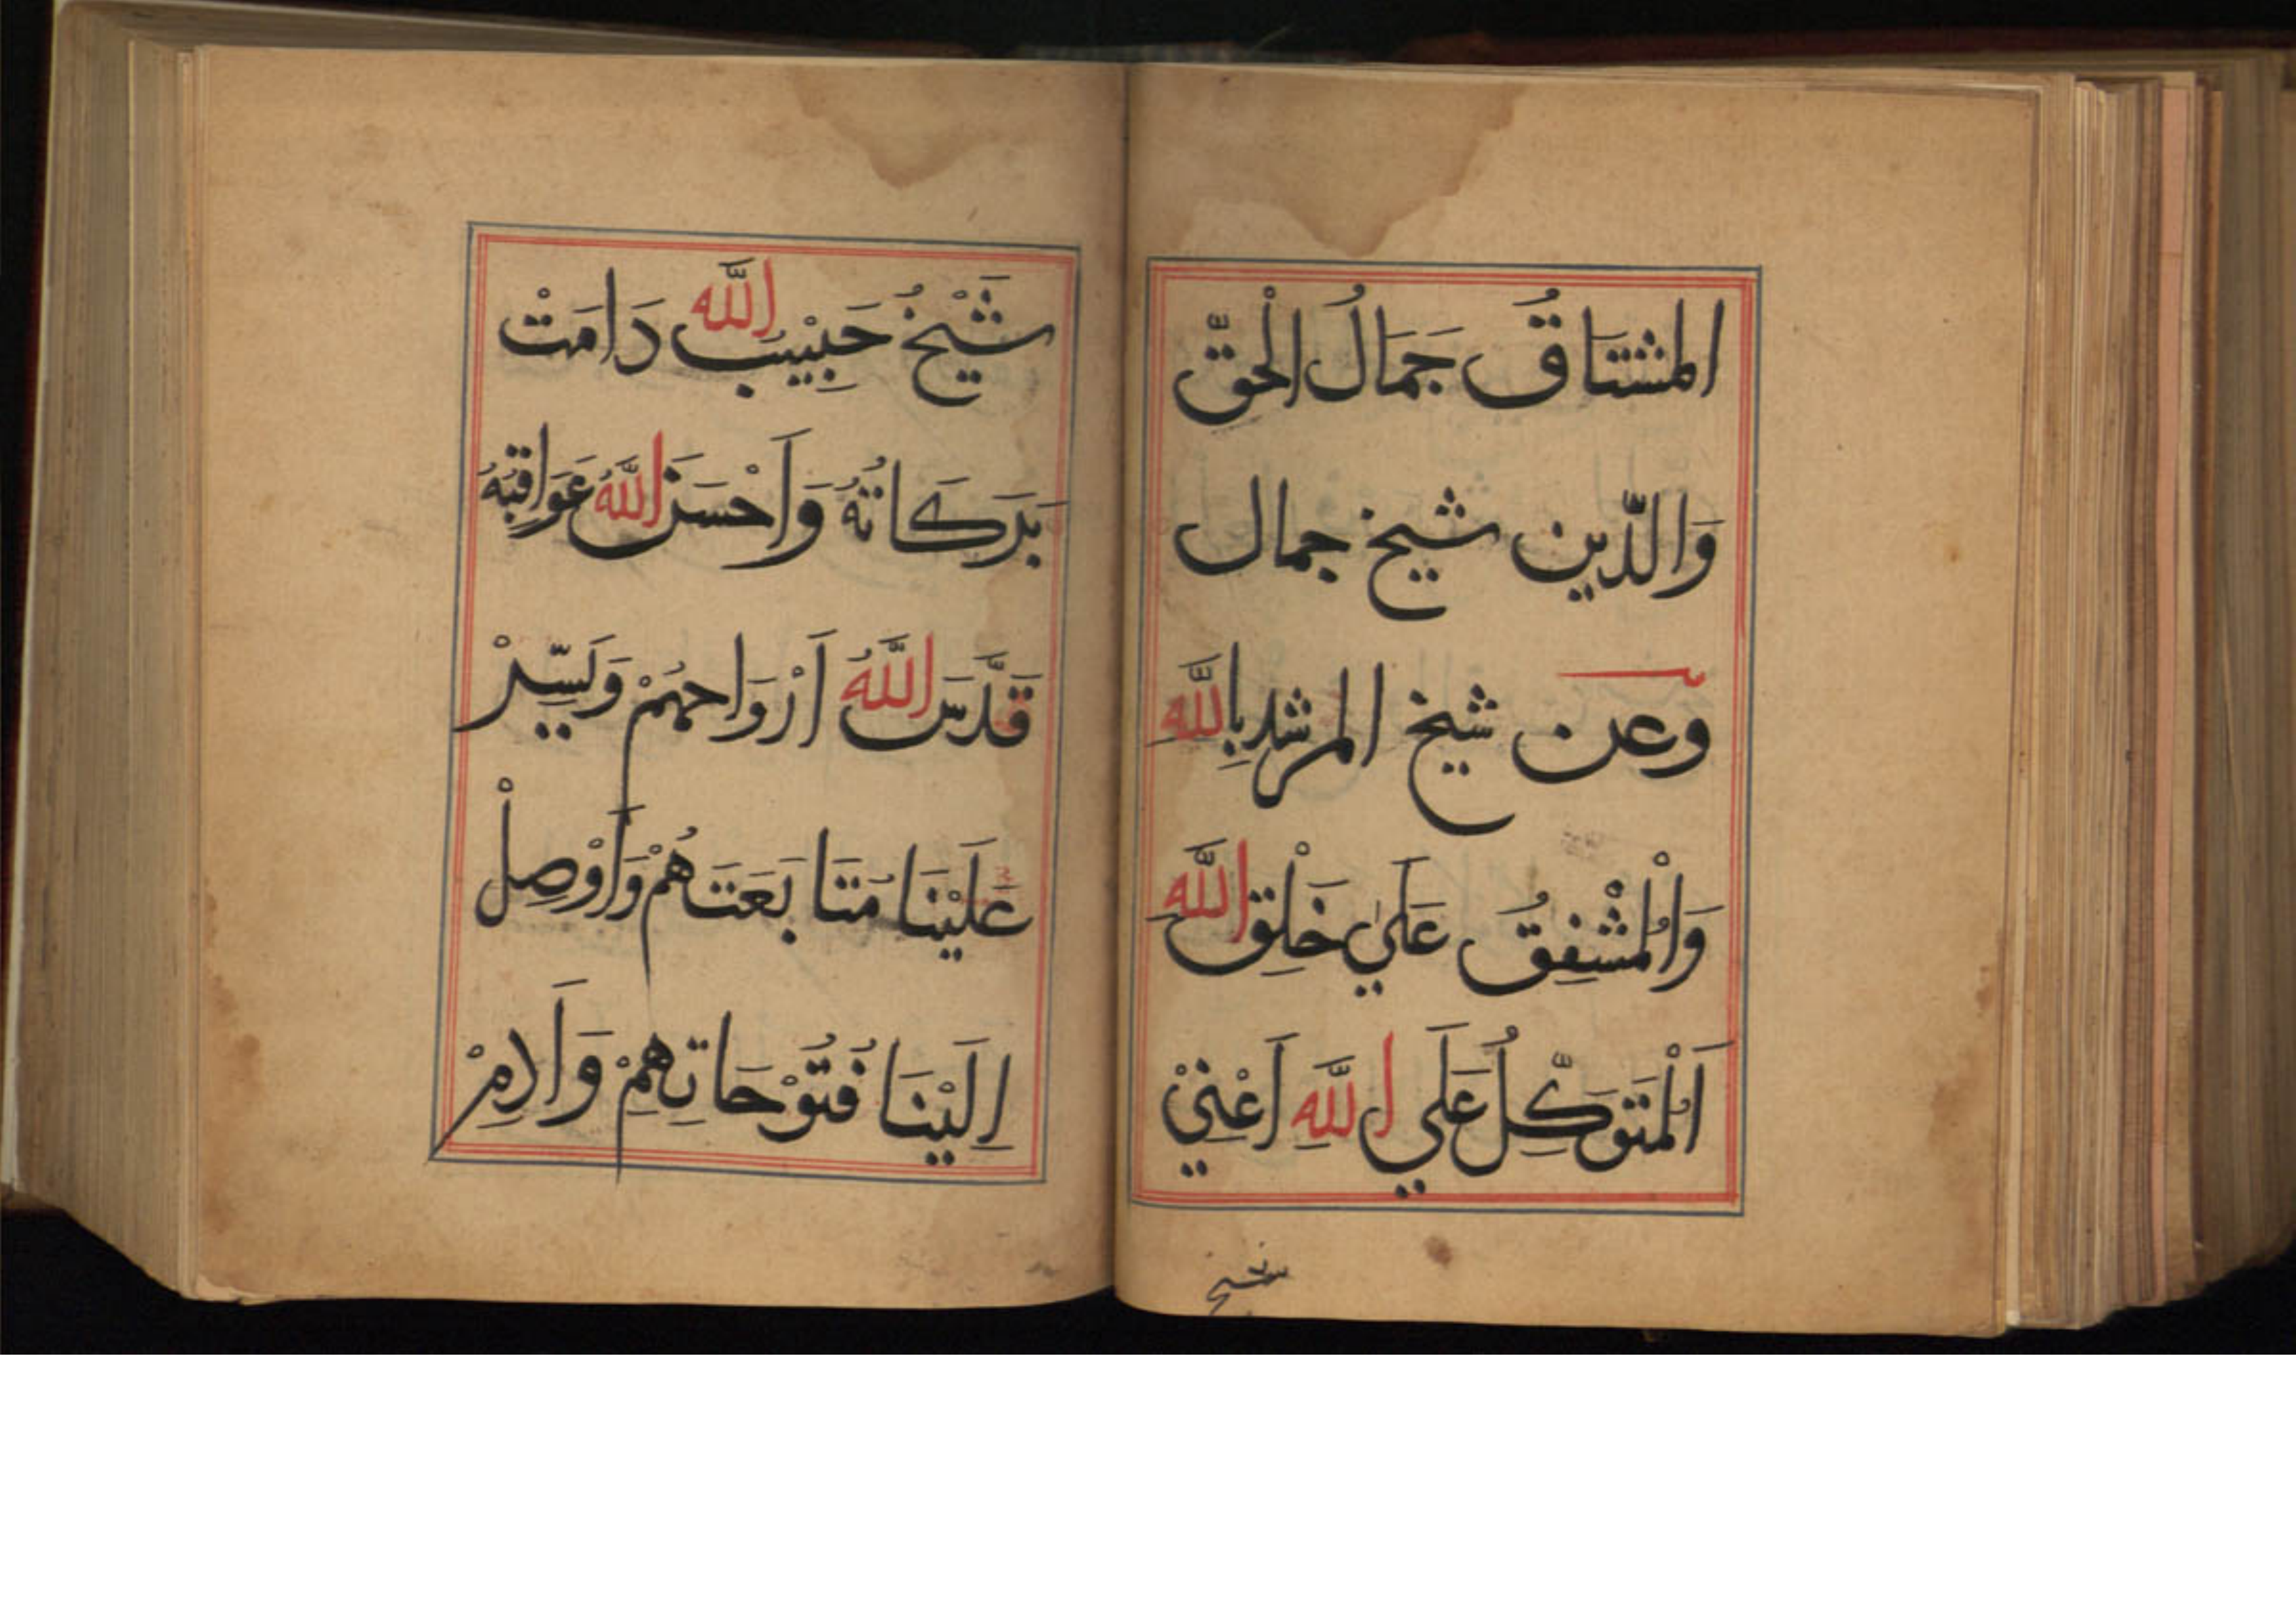 المشتاقُ جَمَالُ الْحقّ
وَالدّين شيخ جمال
وعن شيخ المرشد بِاللّٰه
وَالْمُشْفِقُ عَلَي خَلْقِ اللّٰه
اَلْمُتَوَكِّلُ عَلَي اللّٰهِ اَعْنِيْ
شيخ
شَيْخُ حَبِيْب اللّٰه دَامَتْ
بَرَكَاتُهُ وَاَحْسَنَ اللّٰهُ عَوَاقِبَهُ
قَدَّسَ اللّٰهُ اَرْوَاحَهُمْ وَيَسِّرْ
عَلَيْنَا مَتَابَعَتَهُمْ وَاَوْصِلْ
اِلَيْنَا فُتُوْحَاتِهِمْ وَاَدِمْ